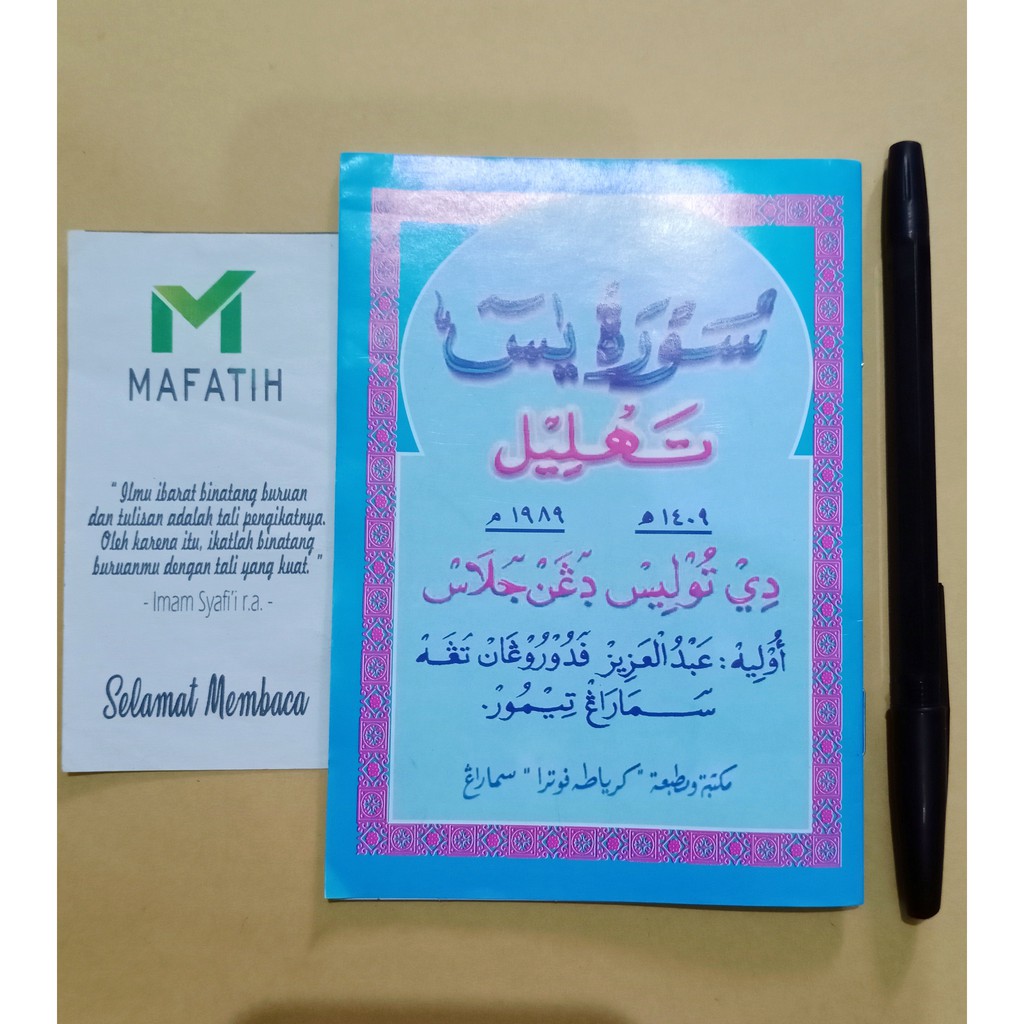 MAFATIH
" Ilmu ibarat binatang buruan
dan tulisan adalah tali pengikatnya.
Oleh karena itu, ikatlah binatang
buruanmu dengan tali yang kuat. "
- Imam Syafi'i r.a. -
Selamat Membaca
سُوْرَةُ يٰسٓ
تَهْلِيْل
١٤٠٩ ﻫ ١٩٨٩ م
دِيْ تُوْلِيْس دڠَنْ جَلَاسْ
أُوْلِيْه : عَبْدُ الْعَزِيْز فَدُوْرُوْڠَانْ تڠَه
سَمَارَاڠْ تِيْمُوْر.
مكتبة ومطبعة " كرياطه فوترا " سماراڠ